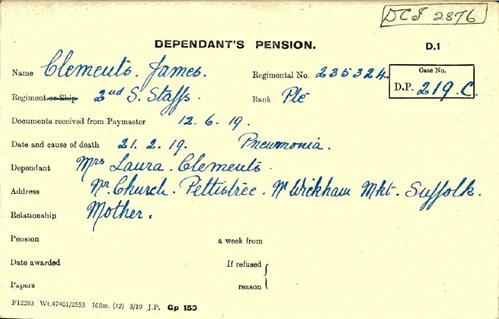 DCI 2876
DEPENDANT'S PENSION. D.1
Name Clements. James. Regimental No. 235324. Case No.
Regiment or Ship 2nd S. Staffs. Rank Pte D.P. 219.C.
Documents received from Paymaster 12.6.19.
Date and cause of death 21.2.19. Pneumonia.
Dependant Mrs Laura. Clements.
Address Nr. Church. Pettistree. Nr Wickham Mkt. Suffolk.
Relationship Mother.
Pension a week from
Date awarded If refused
Papers reason
F12293 Wt.47401/2553 100m. (12) 3/19 J.P. Gp 153